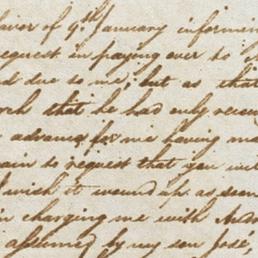 avor of 9th January informin
equest in paying over to
d due to me, but as that
that he had only
advance for me having
ain to request that you wi
wish to wound up as
in charging me with
assumed by my son José,